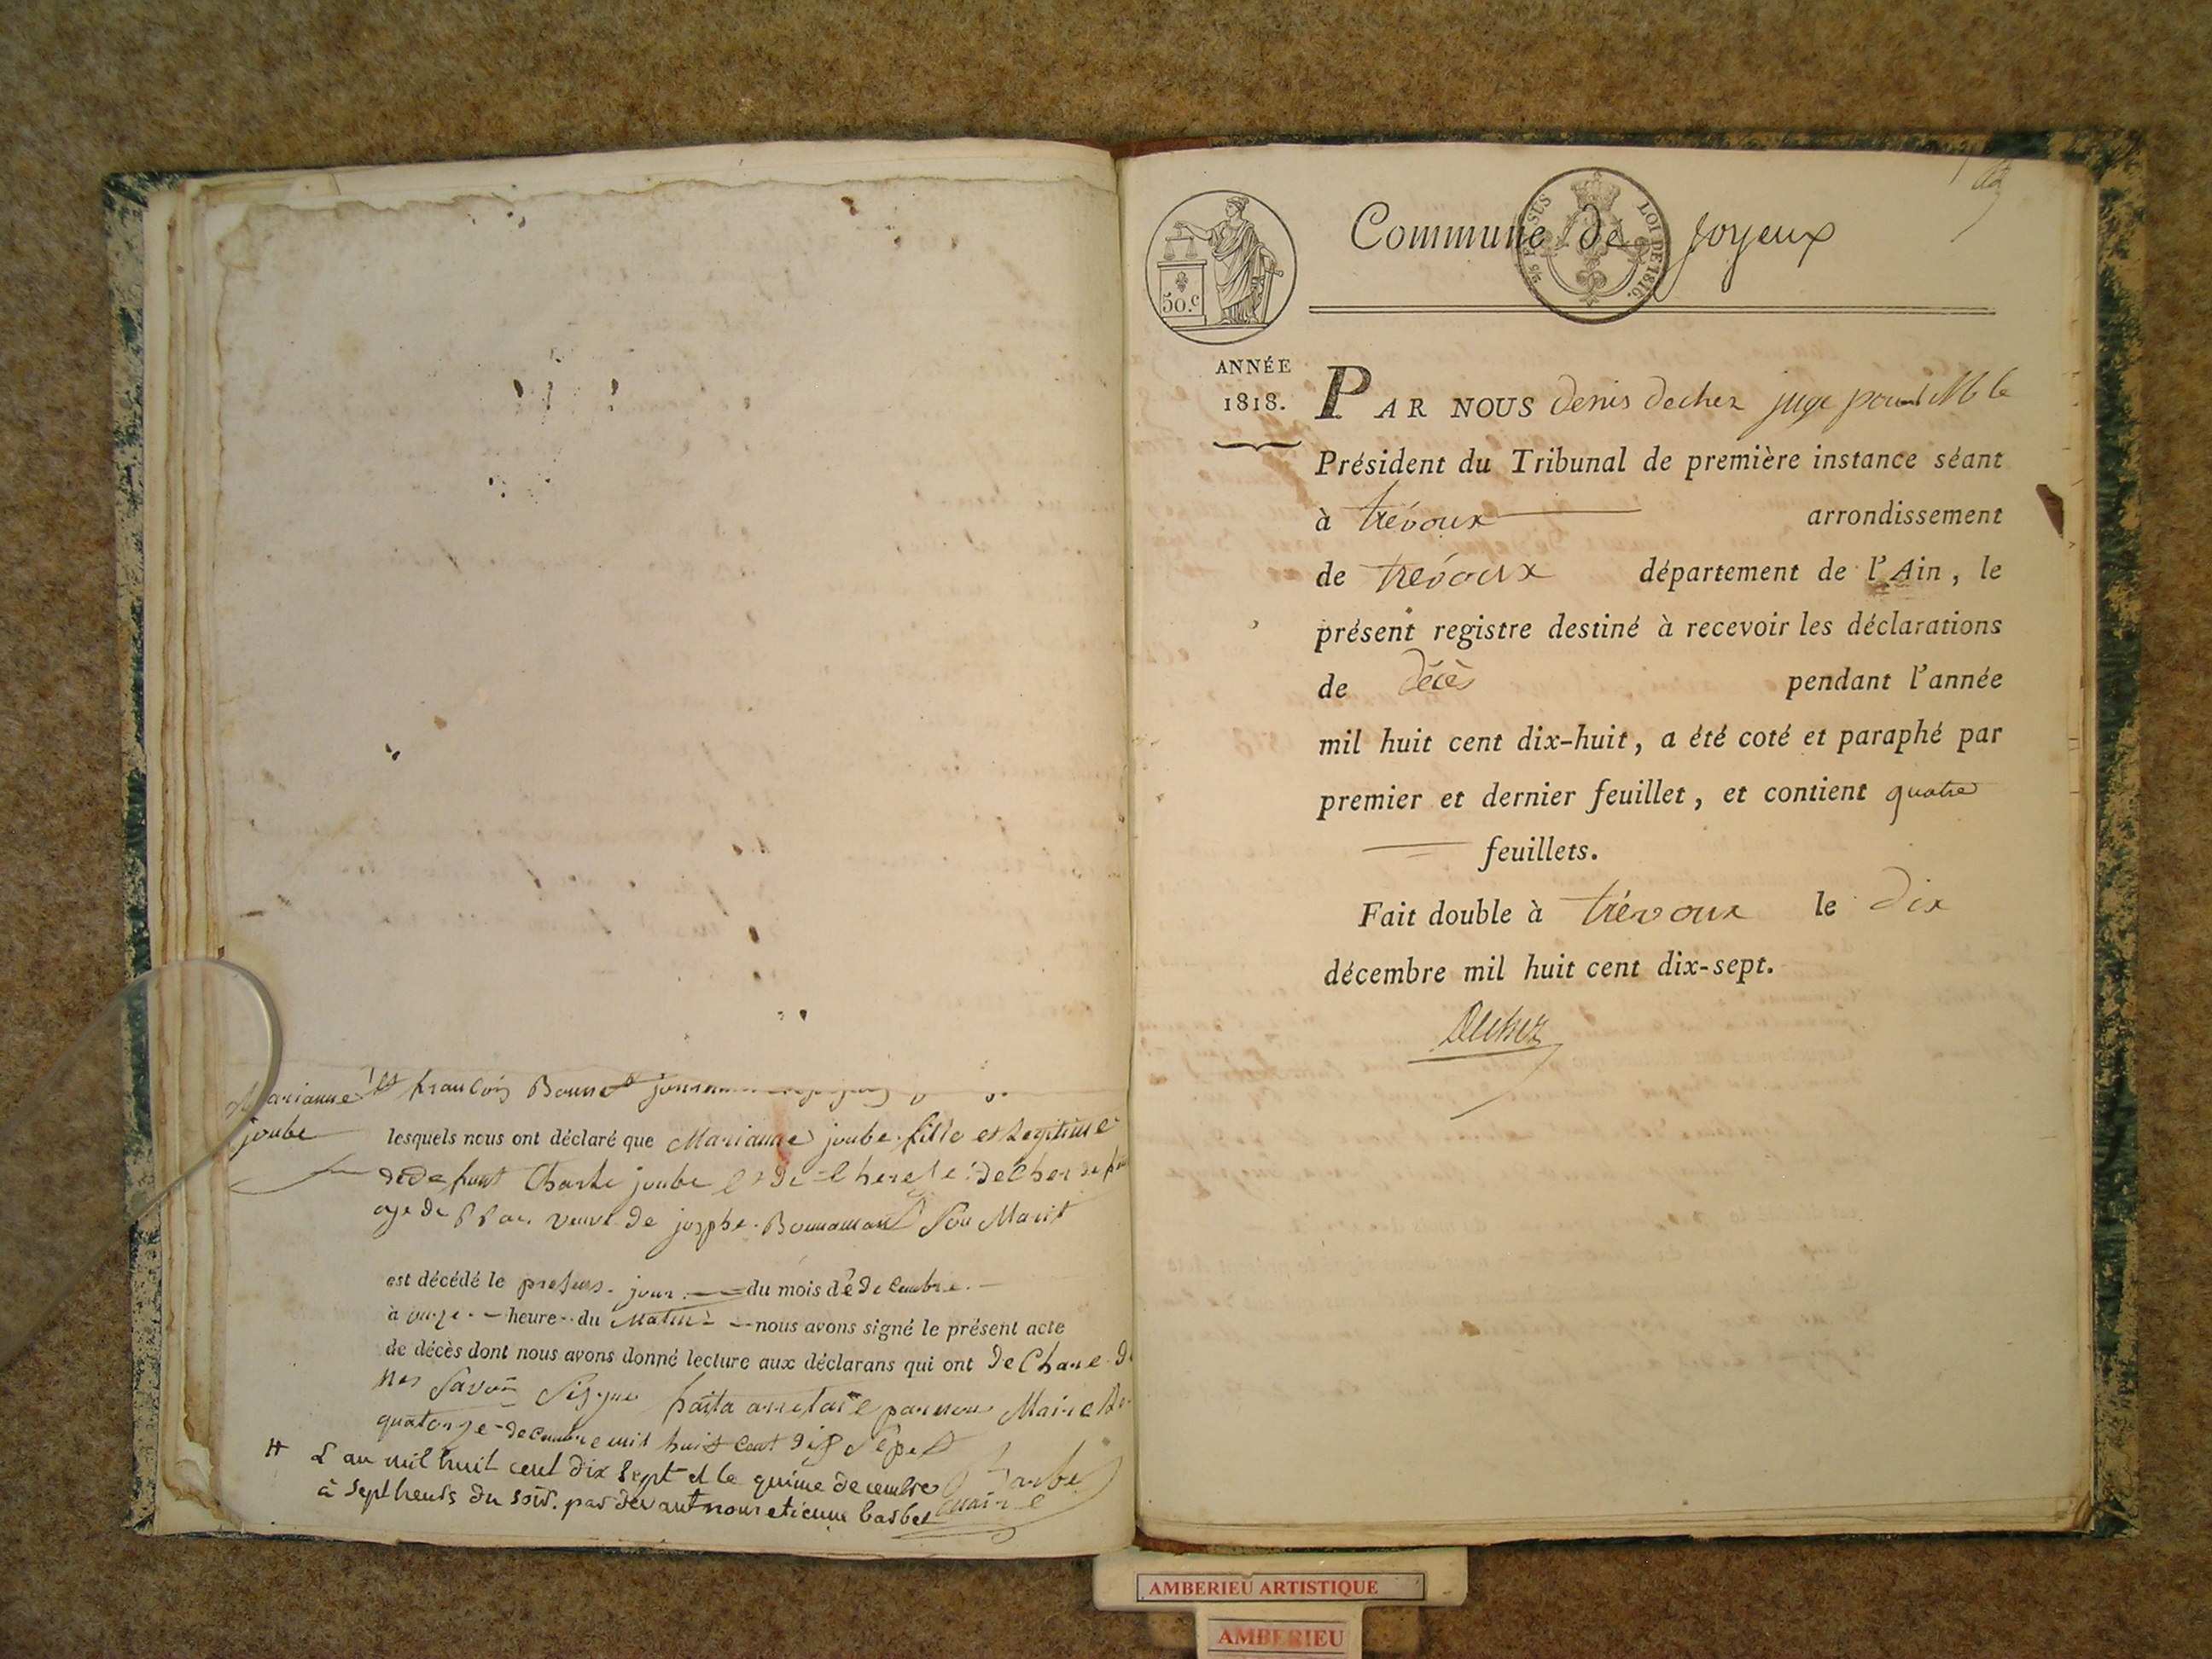 Marianne
joube
et francois Bonnet
lesquels nous ont déclaré que Marianne joube fille et Legitime
de defunt Charle joube et de
age de veuve de josphe Bonnamant Son Marit
est décédé le presens jour du mois dé Decembre
à onze heure du Matin nous avons signé le présent acte
de décès dont nous avons donné lecture aux déclarans qui ont De Clare
Savoir Signe par nous Maire
quatorze decembre mil huit Cent dix Sept
# L'an mil huit cent dix sept et le quinze decembre
à sept heurs du soir par devant nous etienne barbet
Barbe
maire
50.c
Commune de Joyeux
LOI DE 1816.
ANNÉE
1818.
PAR NOUS denis decher juge pour M le
Président du Tribunal de première instance séant
à trévoux arrondissement
de trévoux département de l'Ain, le
présent registre destiné à recevoir les déclarations
de décès pendant l'année
mil huit cent dix-huit, a été coté et paraphé par
premier et dernier feuillet, et contient quatre
feuillets.
Fait double à trévoux le dix
décembre mil huit cent dix-sept.
Decher
AMBERIEU ARTISTIQUE
AMBERIEU